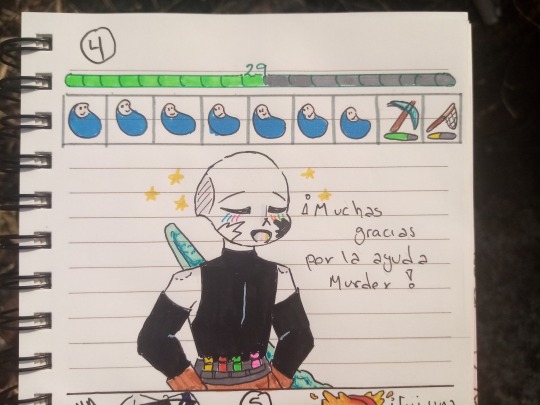 4
29
¡Muchas
gracias
por la ayuda
Murder!
5